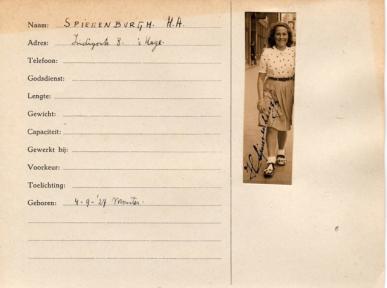 Naam: SPIEGENBURGH. H.A.
Adres: 8. 's Hage.
Telefoon:
Godsdienst:
Lengte:
Gewicht:
Capaciteit:
Gewerkt bij:
Voorkeur:
Toelichting:
Geboren: 4-9-'27 Monster.